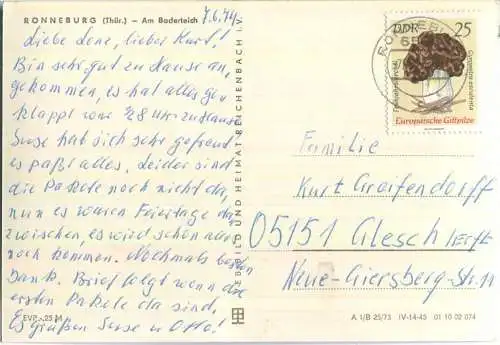 RONNEBURG (Thür.) — Am Baderteich
7.6.74
Liebe Lene, lieber Kurt!
Bin sehr gut zu Hause an-
gekommen, es hat alles ge-
klappt war ½8 Uhr zuhause
Suse hat sich sehr gefreut
es paßt alles, leider sind
die Pakete noch nicht da,
nun es waren Feiertage da-
zwischen, es wird schon
noch kommen. Nochmals besten
Dank. Brief folgt wenn die
ersten Pakete da sind.
Es grüßen Suse u. Otto!
EVP -,25 M
BILD UND HEIMAT REICHENBACH i. V.
RONNEBURG
DDR 25
Gyromitra esculenta
Europäische Giftpilze
Familie
Kurt Greifendorff
05151 Glesch
Neue-Giersberg-Str. 11
A 1/B 25/73 IV-14-45 01 10 02 074